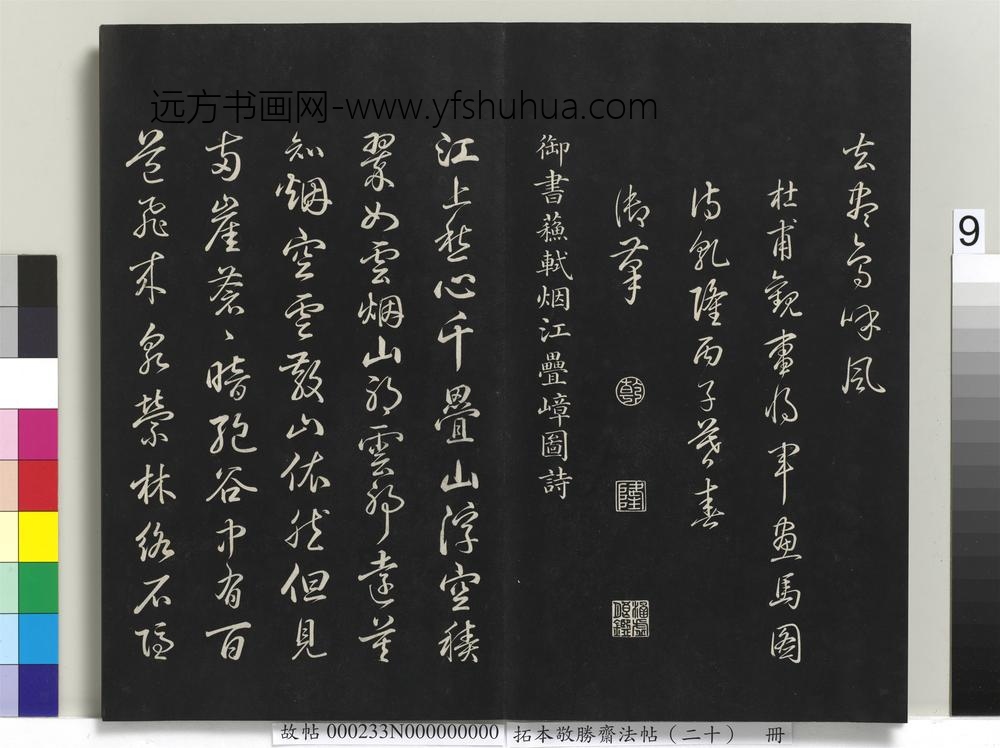 远方书画网-www.yfshuhua.com
去盡鳥呼風
杜甫觀曹将軍畫馬圖
詩乾隆丙子暮春
御筆
乾
隆
御書蘓軾烟江疊嶂圖詩
江上愁心千疊山浮空積
翠如雲烟山耶雲耶遠莫
知烟空雲散山依然但見
兩崖蒼〻暗絶谷中有百
道飛來泉縈林絡石隱
9
故帖 000233N000000000 拓本敬勝齋法帖（二十） 冊